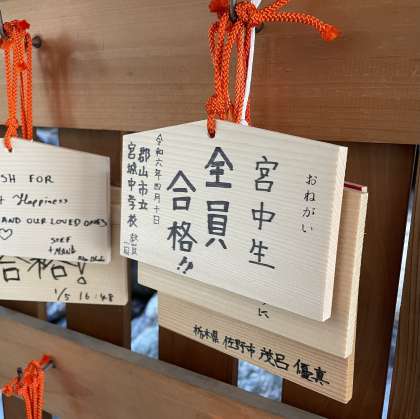 おねがい
宮中生
全員
合格!!
令和六年四月十日
郡山市立
宮城中学校
栃木県 佐野市 茂呂 優真
に
SH FOR
+ Happiness
AND OUR LOVED ONES
合格!
1/5 16:48